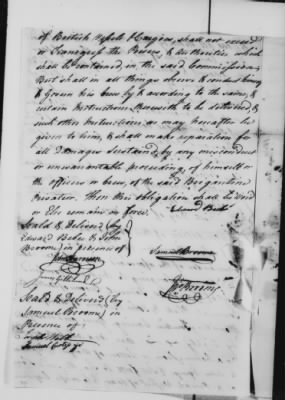 of British Vessels & Cargoes, shall not exceed
or transgress the Powers, & Authorities which
shall be contained in the said Commission
But shall in all things observe & conduct
& Govern his Crew by & according to the same, &
certain Instructions therewith to be delivered &
such other Instructions as may hereafter be
given to him, & shall make reparation for
all Damages Sustained by any misconduct
or unwarrantable proceeding of himself or
the officers or Crew, of the said Brigantine
Privateer. Then this obligation shall be Void
or Else remain in force.
Seald & Delivered (by
Edward Bebee & John
Broome) in presence of
Samuel Broome
Seald & Deliverd (by
Samuel Broome) in
Presence of